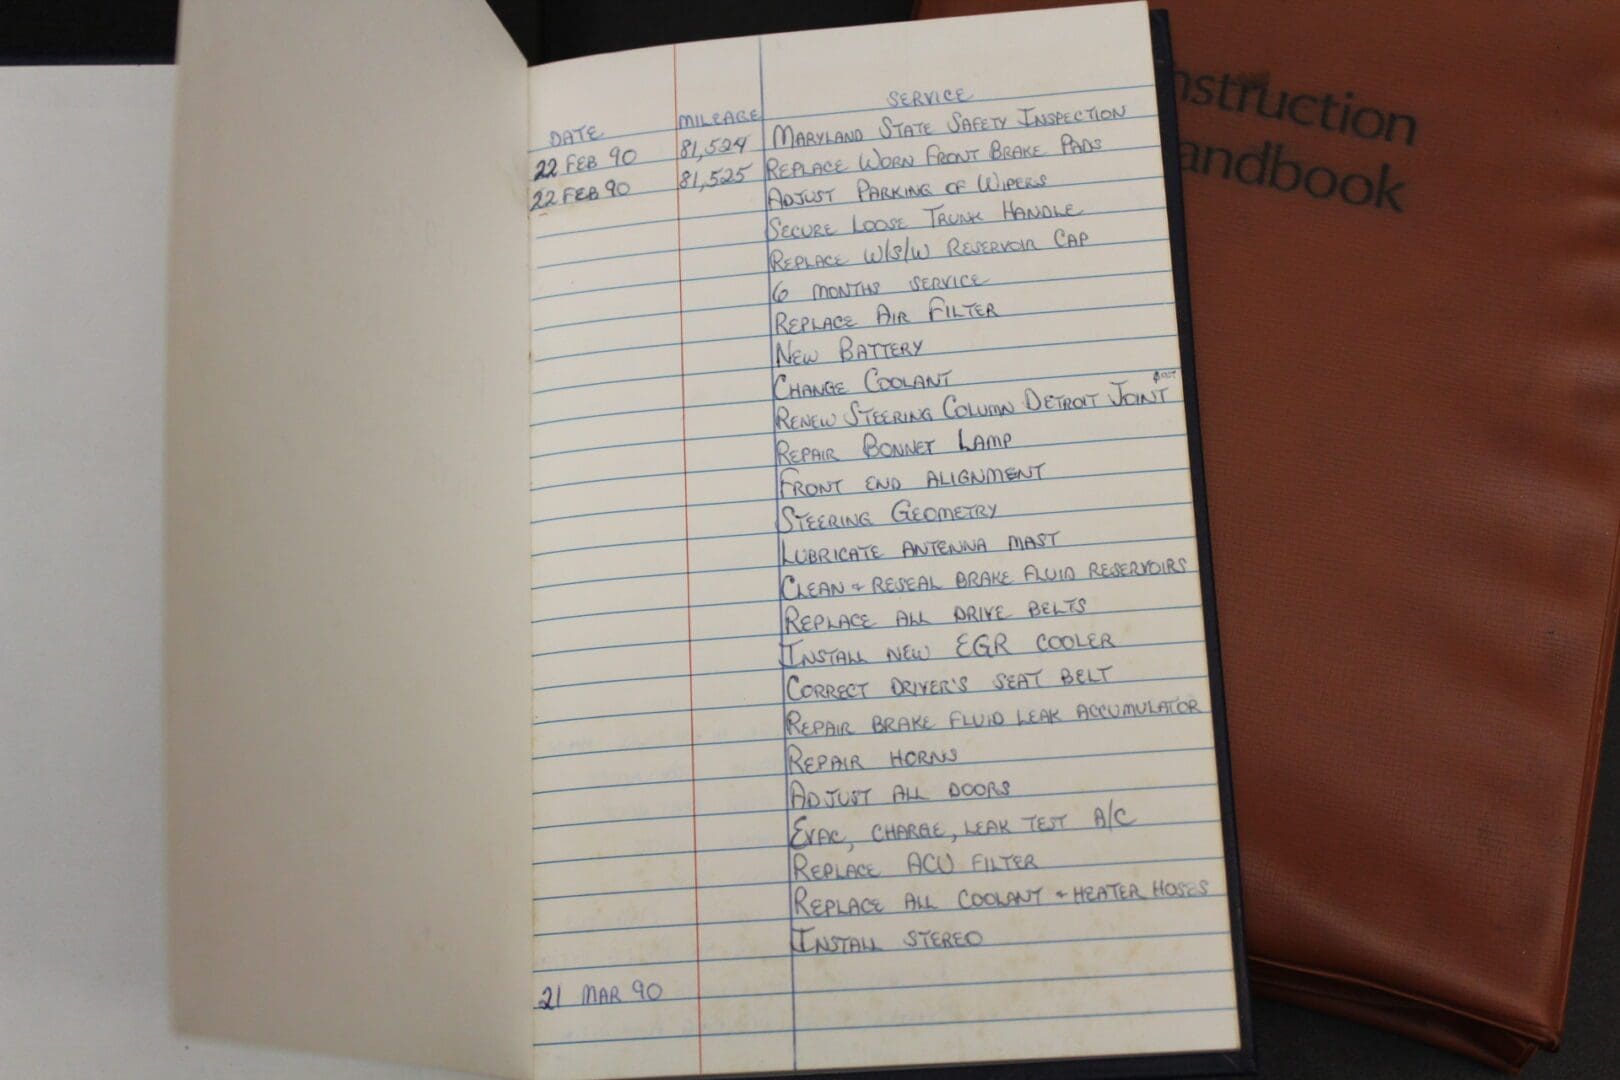 DATE MILEAGE SERVICE
22 FEB 90 81,524 MARYLAND STATE SAFETY INSPECTION
22 FEB 90 81,525 REPLACE WORN FRONT BRAKE PADS
ADJUST PARKING OF WIPERS
SECURE LOOSE TRUNK HANDLE
REPLACE W/S/W RESERVOIR CAP
6 MONTHS SERVICE
REPLACE AIR FILTER
NEW BATTERY
CHANGE COOLANT
RENEW STEERING COLUMN DETROIT JOINT
REPAIR BONNET LAMP
FRONT END ALIGNMENT
STEERING GEOMETRY
LUBRICATE ANTENNA MAST
CLEAN + RESEAL BRAKE FLUID RESERVOIRS
REPLACE ALL DRIVE BELTS
INSTALL NEW EGR COOLER
CORRECT DRIVER'S SEAT BELT
REPAIR BRAKE FLUID LEAK ACCUMULATOR
REPAIR HORNS
ADJUST ALL DOORS
EVAC, CHARGE, LEAK TEST A/C
REPLACE ACU FILTER
REPLACE ALL COOLANT + HEATER HOSES
INSTALL STEREO
21 MAR 90
nstruction
andbook